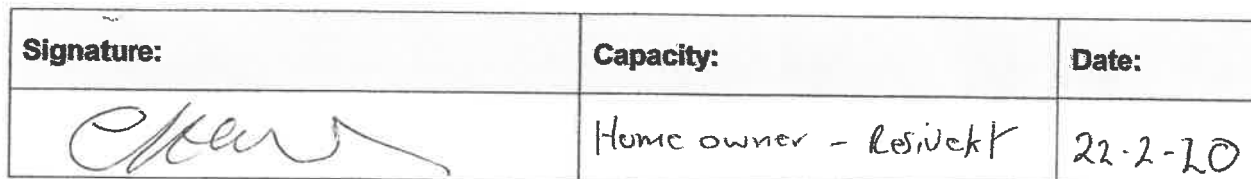 Signature: Capacity: Date:
Home owner - Resident 22-2-20